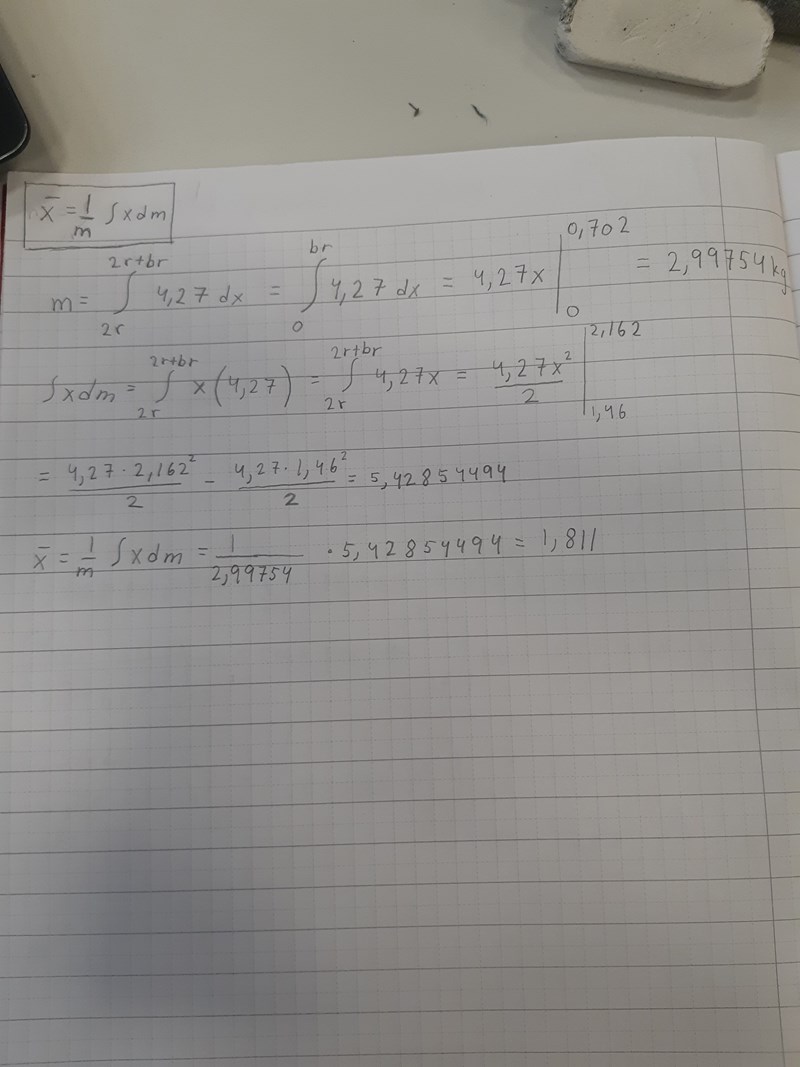 x̄ = 1/m ∫xdm
m = ∫_{2r}^{2r+br} 4,27 dx = ∫_{0}^{br} 4,27 dx = 4,27x |_{0}^{0,702} = 2,99754kg
∫xdm = ∫_{2r}^{2r+br} x(4,27) = ∫_{2r}^{2r+br} 4,27x = 4,27x²/2 |_{1,46}^{2,162}
= 4,27·2,162²/2 - 4,27·1,46²/2 = 5,42854494
x̄ = 1/m ∫xdm = 1/2,99754 · 5,42854494 = 1,811